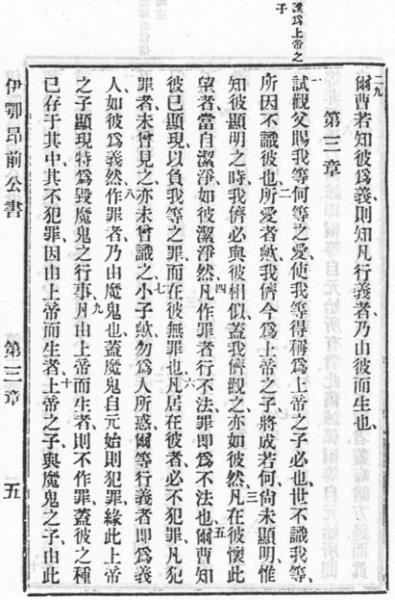 為上帝之
子
二九爾曹若知彼為義、則知凡行義者、乃由彼而生也、
第三章
一試觀父賜我等何等之愛、使我等得稱為上帝之子、必也、世不識我等、
所因不識彼也、二所愛者歟、我儕今為上帝之子、將成若何、尚未顯明、惟
知彼顯明之時、我儕必與彼相似、蓋我儕觀之、亦如彼然、三凡在彼懷此
望者、當自潔淨、如彼潔淨然、四凡作罪者、行不法、罪即為不法也、五爾曹知
彼已顯現、以負我等之罪、而在彼無罪也、六凡居在彼者、必不犯罪、凡犯
罪者、未曾見之、亦未曾識之、七小子歟、勿為人所惑、爾等行義者、即為義
人、如彼為義然、八作罪者、乃由魔鬼也、蓋魔鬼自元始則犯罪、緣此上帝
之子顯現、特為毀魔鬼之行事、九凡由上帝而生者、則不作罪、蓋彼之種
已存于其中、其不犯罪、因由上帝而生者、十上帝之子、與魔鬼之子、由此
伊鄂昂前公書 第三章 五